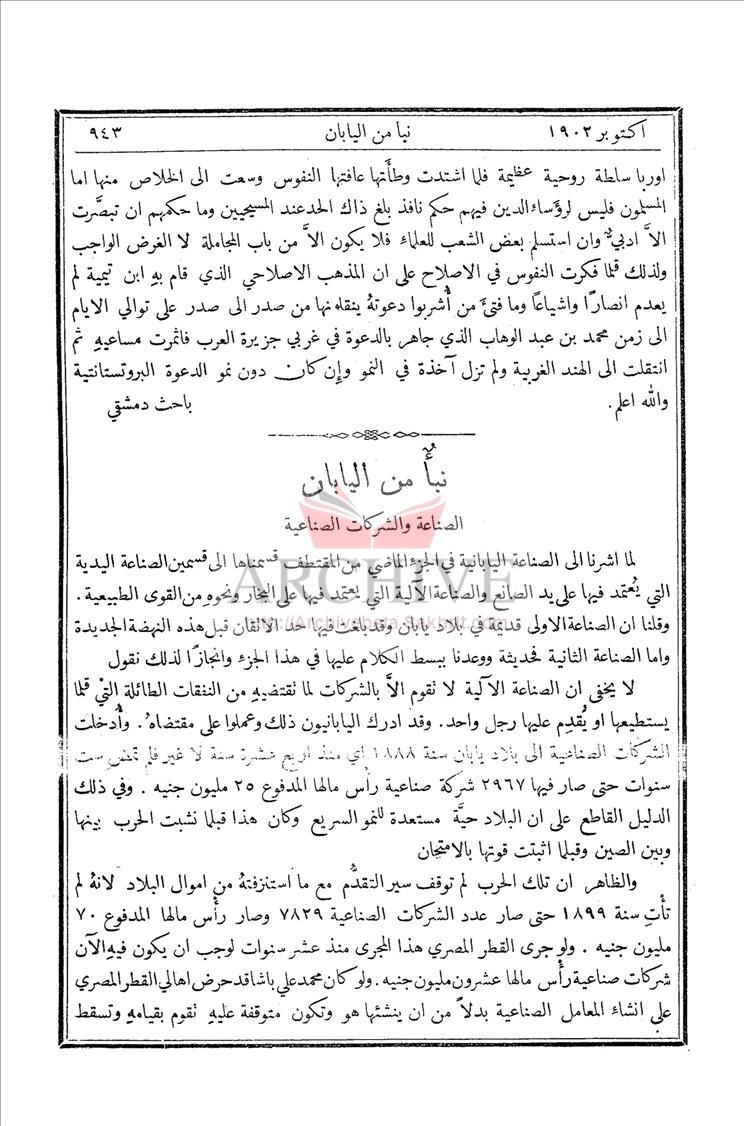 اكتوبر ١٩٠٢ نبأ من اليابان ٩٤٣
اوربا سلطة روحية عظيمة فلما اشتدت وطأتها عافتها النفوس وسعت الى الخلاص منها اما
المسلمون فليس لرؤساء الدين فيهم حكم نافذ بلغ ذاك الحد عند المسيحيين وما حكمهم ان تبصَّرت
الاَّ ادبيٌّ وان استسلم بعض الشعب للعلماء فلا يكون الاَّ من باب المجاملة لا الغرض الواجب
ولذلك قلما فكرت النفوس في الاصلاح على ان المذهب الاصلاحي الذي قام بهِ ابن تيمية لم
يعدم انصارًا واشياعًا وما فتئ من أُشربوا دعوتهُ ينقلونها من صدر الى صدر على توالي الايام
الى زمن محمد بن عبد الوهاب الذي جاهر بالدعوة في غربي جزيرة العرب فاثمرت مساعيهِ ثم
انتقلت الى الهند الغربية ولم تزل آخذة في النمو وإن كان دون نمو الدعوة البروتستانتية
والله اعلم. باحث دمشقي
نبأٌ من اليابان
الصناعة والشركات الصناعية
لما اشرنا الى الصناعة اليابانية في الجزء الماضي من المقتطف قسمناها الى قسمين الصناعة اليدية
التي يُعتمد فيها على يد الصانع والصناعة الآلية التي يعتمد فيها على البخار ونحوهِ من القوى الطبيعية .
وقلنا ان الصناعة الاولى قديمة في بلاد يابان وقد بلغت فيها حد الاتقان قبل هذه النهضة الجديدة
واما الصناعة الثانية فحديثة ووعدنا ببسط الكلام عليها في هذا الجزء وانجازًا لذلك نقول
لا يخفى ان الصناعة الآلية لا تقوم الاَّ بالشركات لما تقتضيهِ من النفقات الطائلة التي قلما
يستطيعها او يُقدِم عليها رجل واحد. وقد ادرك اليابانيون ذلك وعملوا على مقتضاهُ. وأُدخلت
الشركات الصناعية الى بلاد يابان سنة ١٨٨٨ اي منذ اربع عشرة سنة لا غير فلم تمض ست
سنوات حتى صار فيها ٢٩٦٧ شركة صناعية رأس مالها المدفوع ٢٥ مليون جنيه . وفي ذلك
الدليل القاطع على ان البلاد حيَّة مستعدة للنمو السريع وكان هذا قبلما نشبت الحرب بينها
وبين الصين وقبلما اثبتت قوتها بالامتحان
والظاهر ان تلك الحرب لم توقف سير التقدُّم مع ما استنزفتهُ من اموال البلاد لانهُ لم
تأْتِ سنة ١٨٩٩ حتى صار عدد الشركات الصناعية ٧٨٢٩ وصار رأْس مالها المدفوع ٧٠
مليون جنيه . ولو جرى القطر المصري هذا المجرى منذ عشر سنوات لوجب ان يكون فيهِ الآن
شركات صناعية رأس مالها عشرون مليون جنيه . ولو كان محمد علي باشا قد حرض اهالي القطر المصري
على انشاء المعامل الصناعية بدلاً من ان ينشئها هو وتكون متوقفة عليهِ تقوم بقيامهِ وتسقط
ARCHIVE